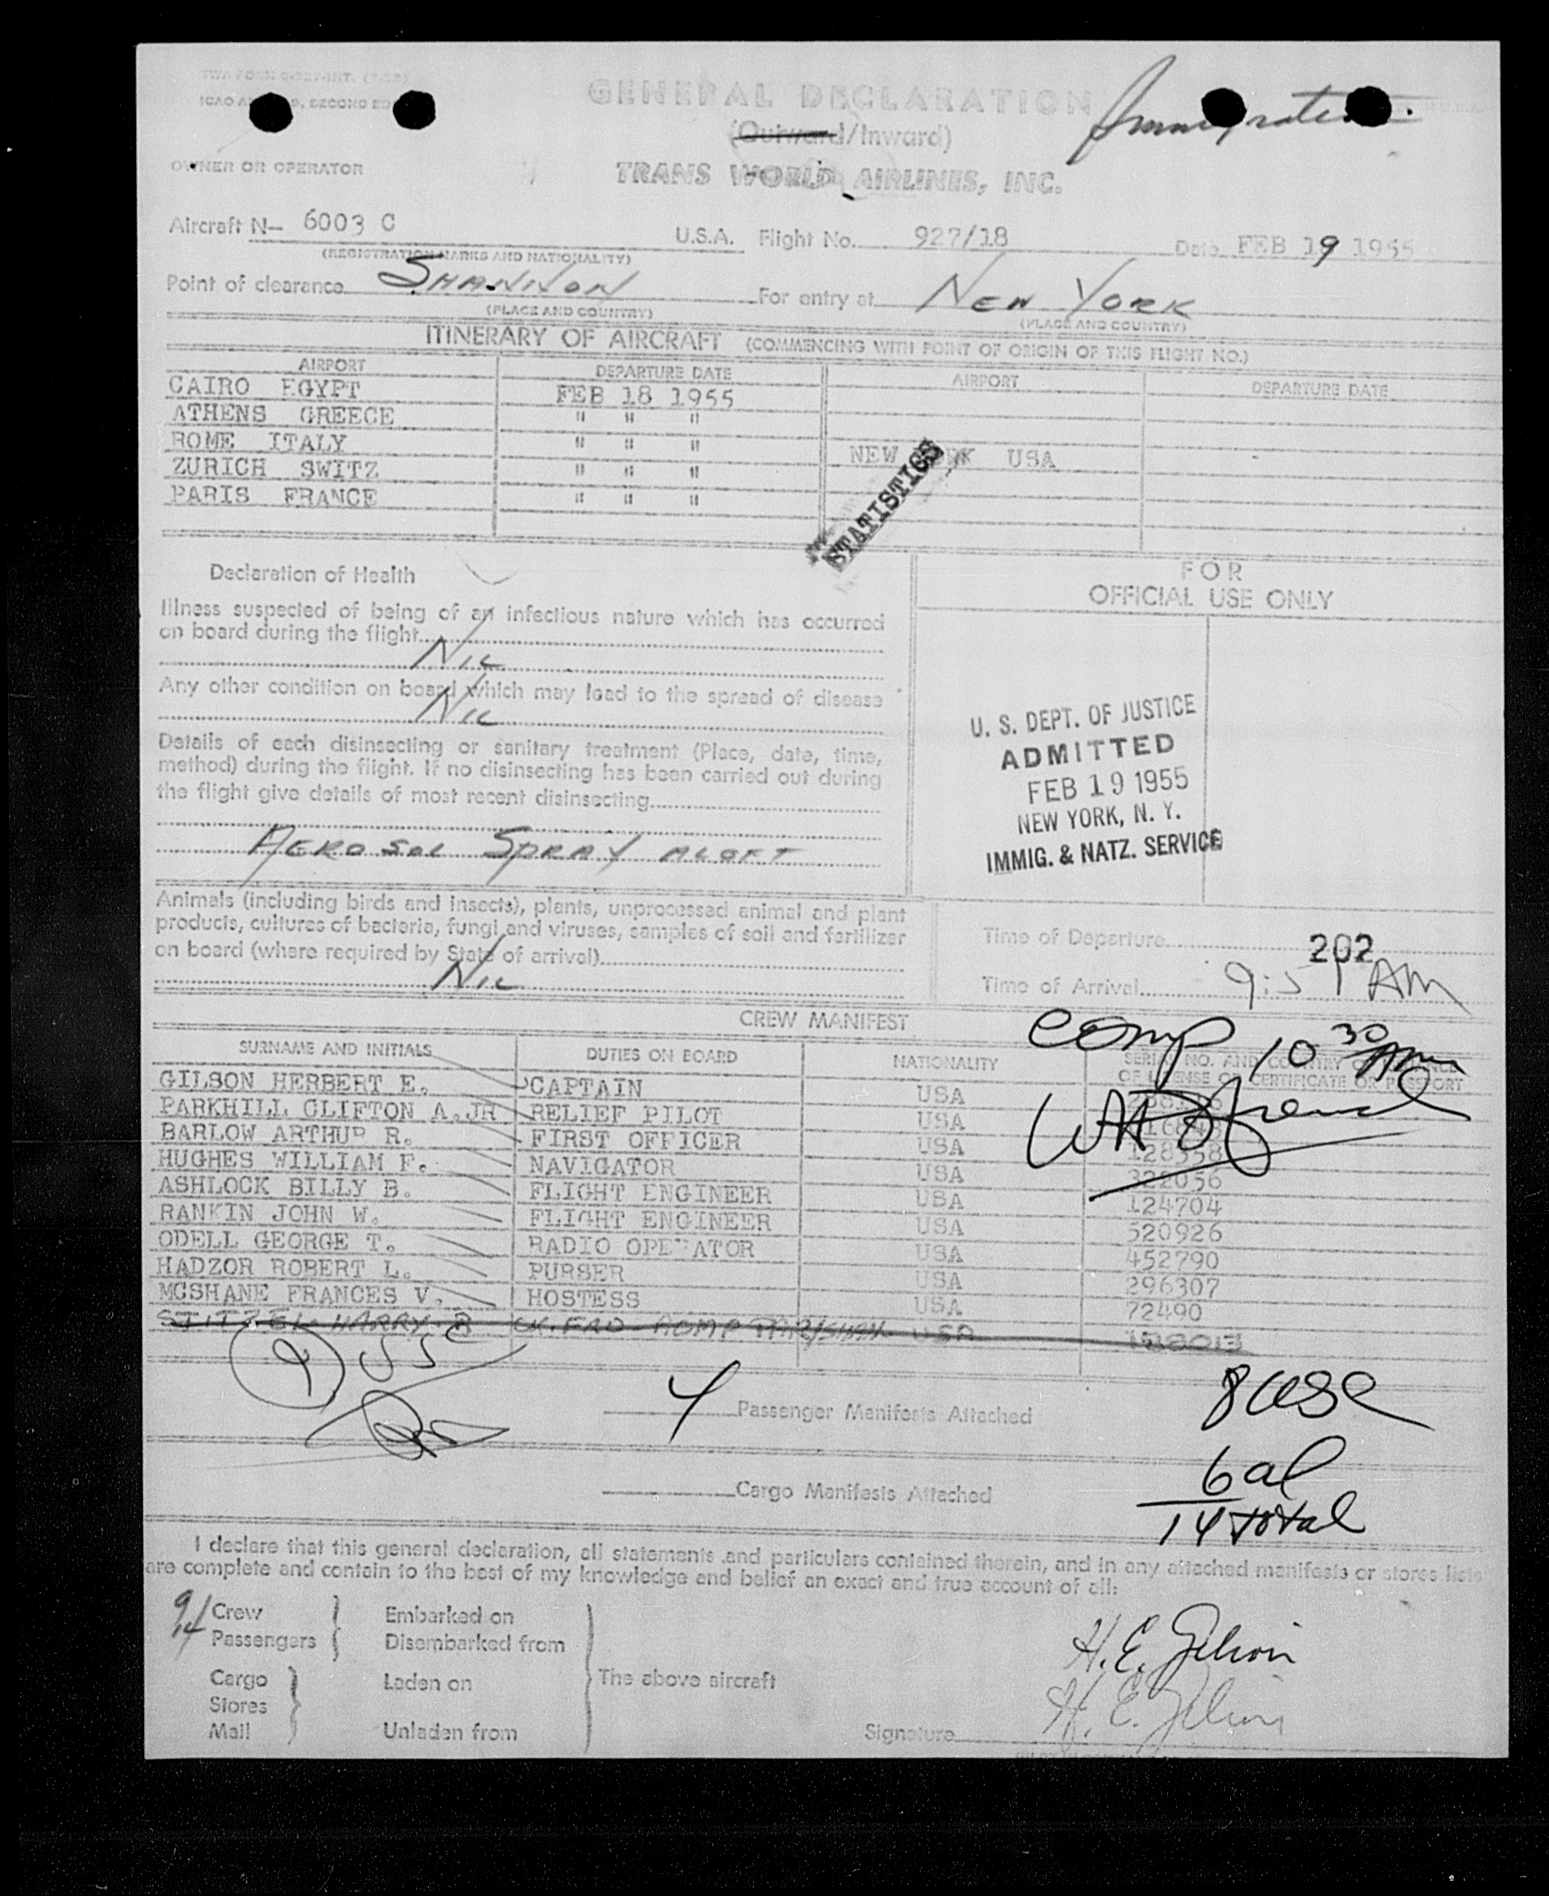 GENERAL DECLARATION
(Outward/Inward)
OWNER OR OPERATOR
TRANS WORLD AIRLINES, INC.
Aircraft N— 6003 C U.S.A. Flight No. 927/18 Date FEB 19 1955
(REGISTRATION MARKS AND NATIONALITY)
Point of clearance SHANNON For entry at NEW YORK
(PLACE AND COUNTRY) (PLACE AND COUNTRY)
ITINERARY OF AIRCRAFT (COMMENCING WITH POINT OF ORIGIN OF THIS FLIGHT NO.)
AIRPORT DEPARTURE DATE AIRPORT DEPARTURE DATE
CAIRO EGYPT FEB 18 1955
ATHENS GREECE " " "
ROME ITALY " " " NEW YORK USA
ZURICH SWITZ " " "
PARIS FRANCE " " "
STATISTICS
Declaration of Health
FOR
OFFICIAL USE ONLY
Illness suspected of being of an infectious nature which has occurred
on board during the flight
NIL
Any other condition on board which may lead to the spread of disease
NIL
Details of each disinsecting or sanitary treatment (Place, date, time,
method) during the flight. If no disinsecting has been carried out during
the flight give details of most recent disinsecting
AEROSOL SPRAY ALOFT
U. S. DEPT. OF JUSTICE
ADMITTED
FEB 19 1955
NEW YORK, N. Y.
IMMIG. & NATZ. SERVICE
Animals (including birds and insects), plants, unprocessed animal and plant
products, cultures of bacteria, fungi and viruses, samples of soil and fertilizer
on board (where required by State of arrival)
NIL
Time of Departure
202
Time of Arrival 9:51 AM
CREW MANIFEST
Comp 10 30 Am
SURNAME AND INITIALS DUTIES ON BOARD NATIONALITY
GILSON HERBERT E. CAPTAIN USA
PARKHILL CLIFTON A. JR RELIEF PILOT USA
BARLOW ARTHUR R. FIRST OFFICER USA 128558
HUGHES WILLIAM F. NAVIGATOR USA 322056
ASHLOCK BILLY B. FLIGHT ENGINEER USA 124704
RANKIN JOHN W. FLIGHT ENGINEER USA 520926
ODELL GEORGE T. RADIO OPERATOR USA 452790
HADZOR ROBERT L. PURSER USA 296307
MCSHANE FRANCES V. HOSTESS USA 72490
STITZEL HARRY B USA
9 US
4 Passenger Manifests Attached
8 USC
Cargo Manifests Attached
6 al
14 total
I declare that this general declaration, all statements and particulars contained therein, and in any attached manifests or stores lists
are complete and contain to the best of my knowledge and belief an exact and true account of all:
9/14 Crew Embarked on
Passengers Disembarked from
Cargo Laden on The above aircraft
Stores
Mail Unladen from
H. E. Gilson
Signature H. E. Gilson